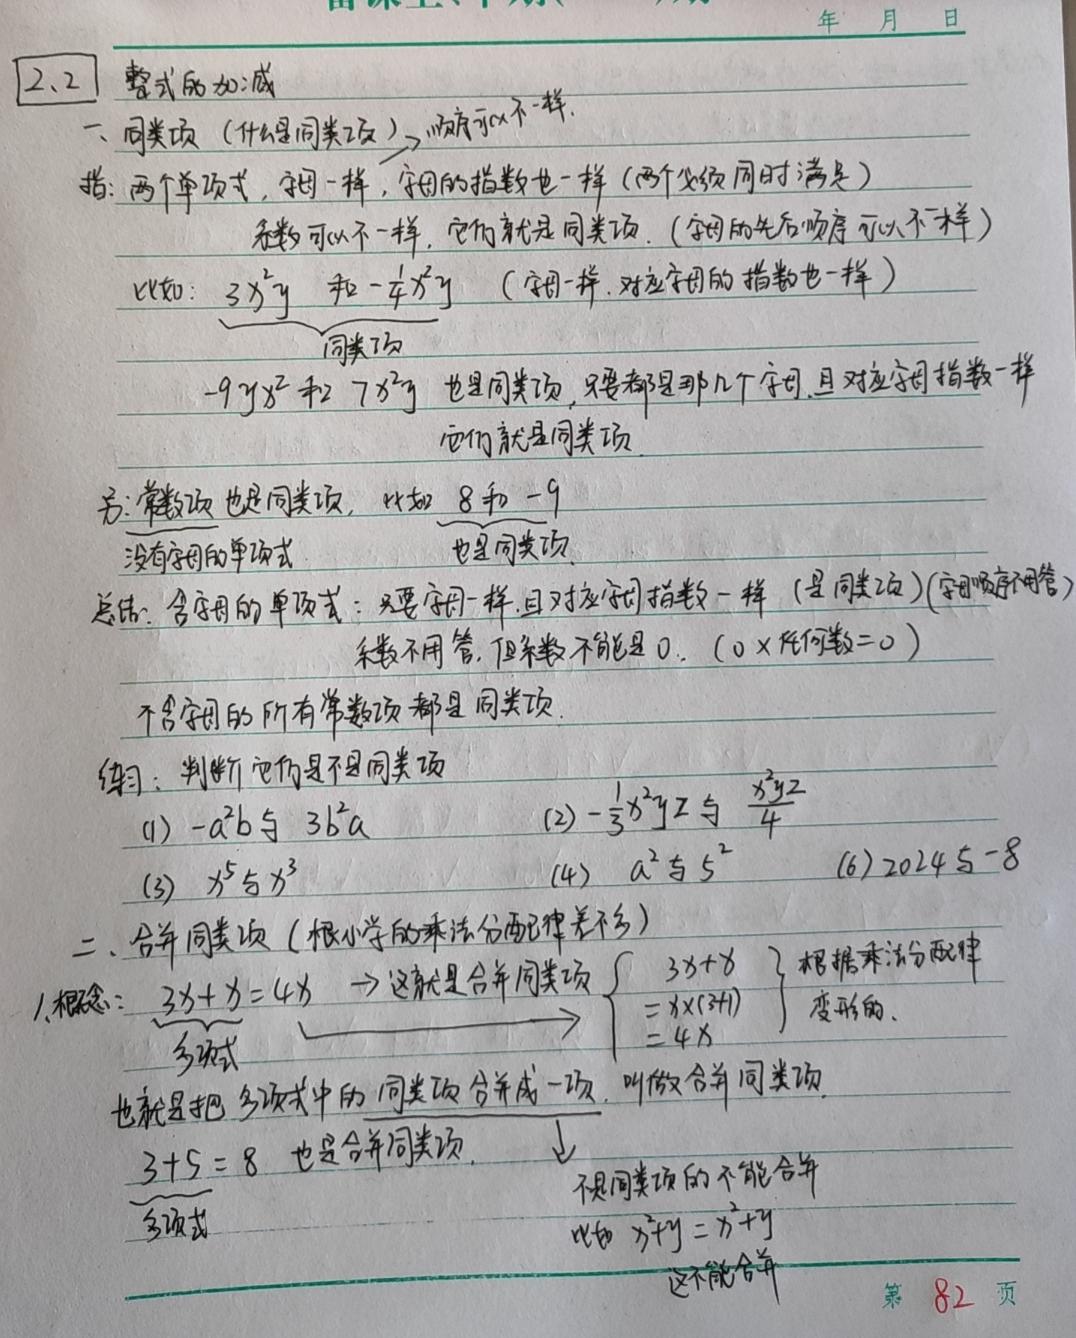 年 月 日
2、2 整式的加减
一、同类项（什么是同类项）→顺序可以不一样.
指：两个单项式，字母一样，字母的指数也一样（两个必须同时满足）
系数可以不一样，它们就是同类项.（字母的先后顺序可以不一样）
比如：3x²y 和 -¼x²y （字母一样.对应字母的指数也一样）
同类项
-9yx² 和 7x²y 也是同类项，只要都是那几个字母，且对应字母指数一样
它们就是同类项.
另：常数项也是同类项，比如 8和 -9
没有字母的单项式 也是同类项.
总结：含字母的单项式：只要字母一样.且对应字母指数一样（是同类项）（字母顺序不用管）
系数不用管，但系数不能是0.（0×任何数=0）
不含字母的所有常数项都是同类项.
练习：判断它们是不是同类项
(1) -a²b与 3b²a (2) -⅓x²yz与 x²yz/4
(3) x⁵与x³ (4) a²与5² (6) 2024与-8
二、合并同类项（根小学的乘法分配律差不多）
1、概念：3x+x=4x →这就是合并同类项 { 3x+x } 根据乘法分配律
=x×(3+1) 变形的、
多项式 =4x
也就是把多项式中的同类项合并成一项.叫做合并同类项.
3+5=8 也是合并同类项.
多项式 不是同类项的不能合并
比如 x²+y=x²+y
这不能合并
第 82 页